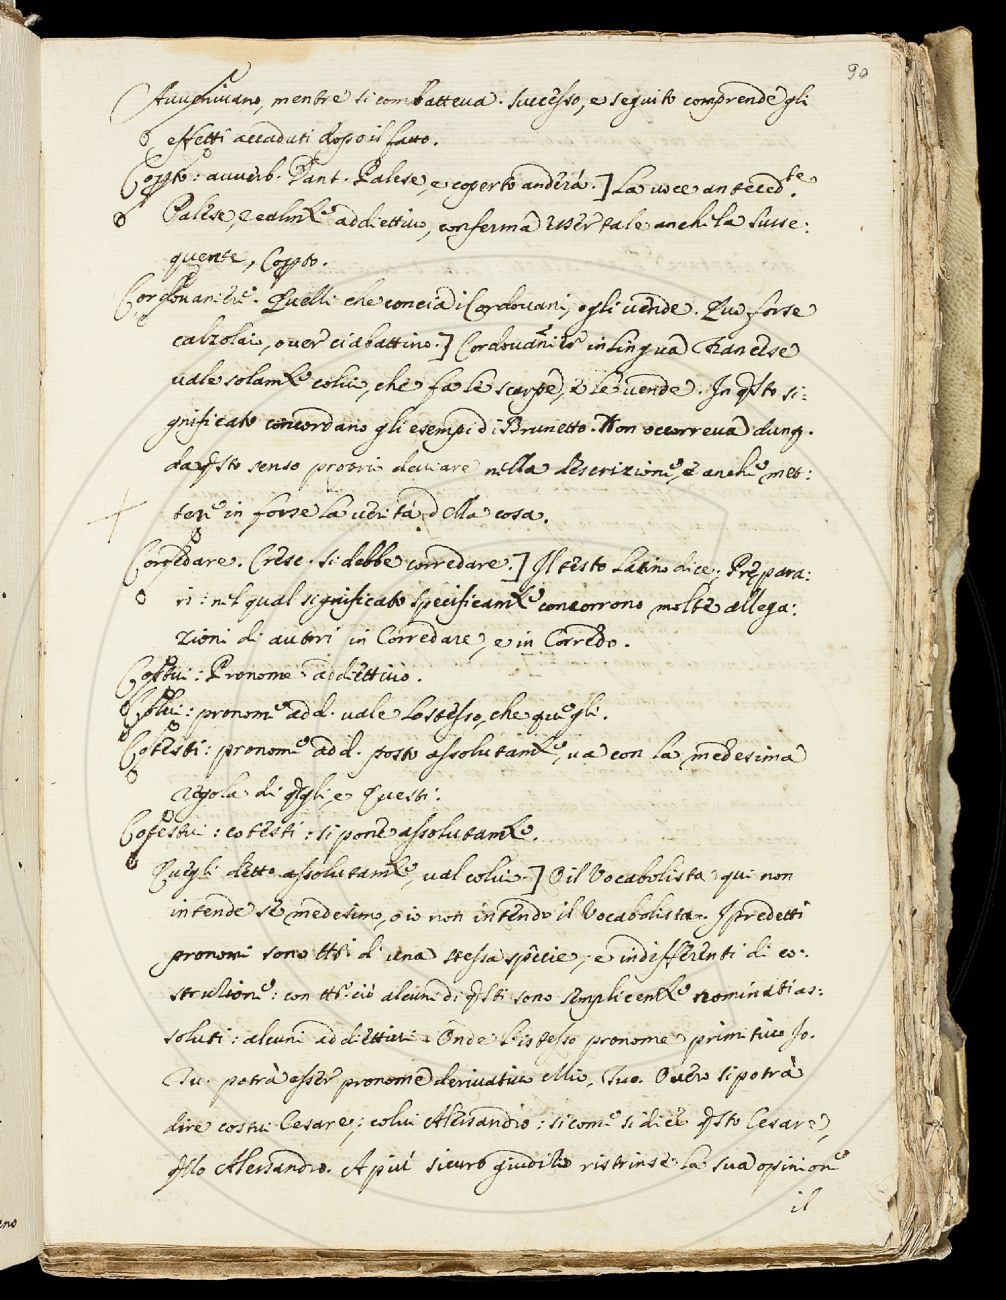 90
Avvenivano, mentre si combatteva. successo, e seguito comprende gli
effetti accaduti dopo il fatto.
Copto: avverb. Dant. Palese, e coperto anderà.] La voce anteced.te
Palese, e talm.te addiettivo, conferma esser tale anche la susse:
quente, Copto.
Cordovaniere. Quelli che concia i Cordovani, o gli vende. Qui forse
calzolaio, over ciabattino.] Cordovanier in lingua Francese
vale solam.te colui, che fa le scarpe, e le vende. In q.sto si:
gnificato concordano gli esempi di Brunetto. Non occorreva dunq.
da q.sto senso proprio deviare nella descrizione, e anche met:
tere in forse la verità della cosa.
Corredare. Cresc. si debbe corredare.] Il testo Latino dice; Prepara:
ri: nel qual significato specificam.te concorrono molte allega:
zioni di autori in Corredare, e in Corredo.
Costui: Pronome addiettivo.
Colui: pronome add. vale lo stesso, che quegli.
Cotesti: pronome add. posto assolutam.te, va con la medesima
regola di q.gli, e Questi.
Cotestui: cotesti: si pone assolutam.te.
Quegli detto assolutam.te, val colui.] O il Vocabolista qui non
intende se medesimo, o io non intendo il Vocabolista. I predetti
pronomi sono tt.i di una stessa spècie, e indifferenti di co:
struzione: con tt.o ciò alcuni di q.sti sono semplicem.te nominati as:
soluti: alcuni addiettivi. Onde l'istesso pronome primitivo Io.
Tu. potrà esser pronome derivativo Mio, Tuo. Overo si potrà
dire costui Cesare; colui Alessandro: sì come si dice q.sto Cesare,
q.llo Alessandro. A più sicuro giudizio ristrinse la sua opinione
il